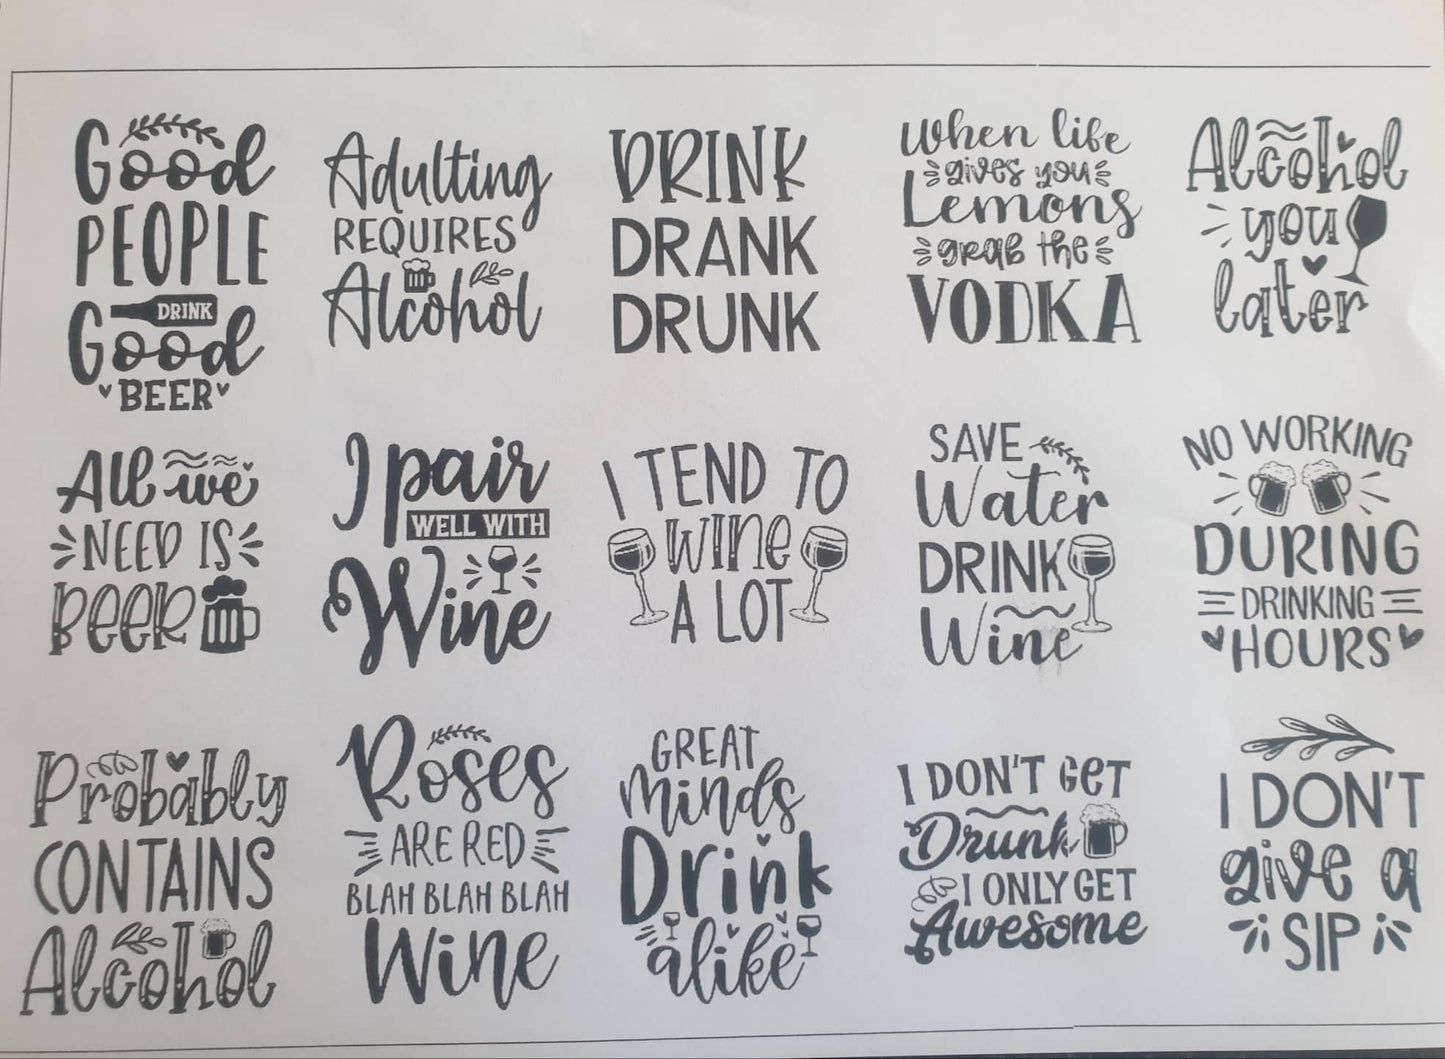 Good
PEOPLE
DRINK
Good
BEER
Adulting
REQUIRES
Alcohol
DRINK
DRANK
DRUNK
When life
gives you
Lemons
grab the
VODKA
Alcohol
you
later
All we
NEED IS
BEER
I pair
WELL WITH
Wine
I TEND TO
WINE
A LOT
SAVE
Water
DRINK
Wine
NO WORKING
DURING
DRINKING
HOURS
Probably
CONTAINS
Alcohol
Roses
ARE RED
BLAH BLAH BLAH
Wine
GREAT
minds
Drink
alike
I DON'T GET
Drunk
I ONLY GET
Awesome
I DON'T
give a
SIP